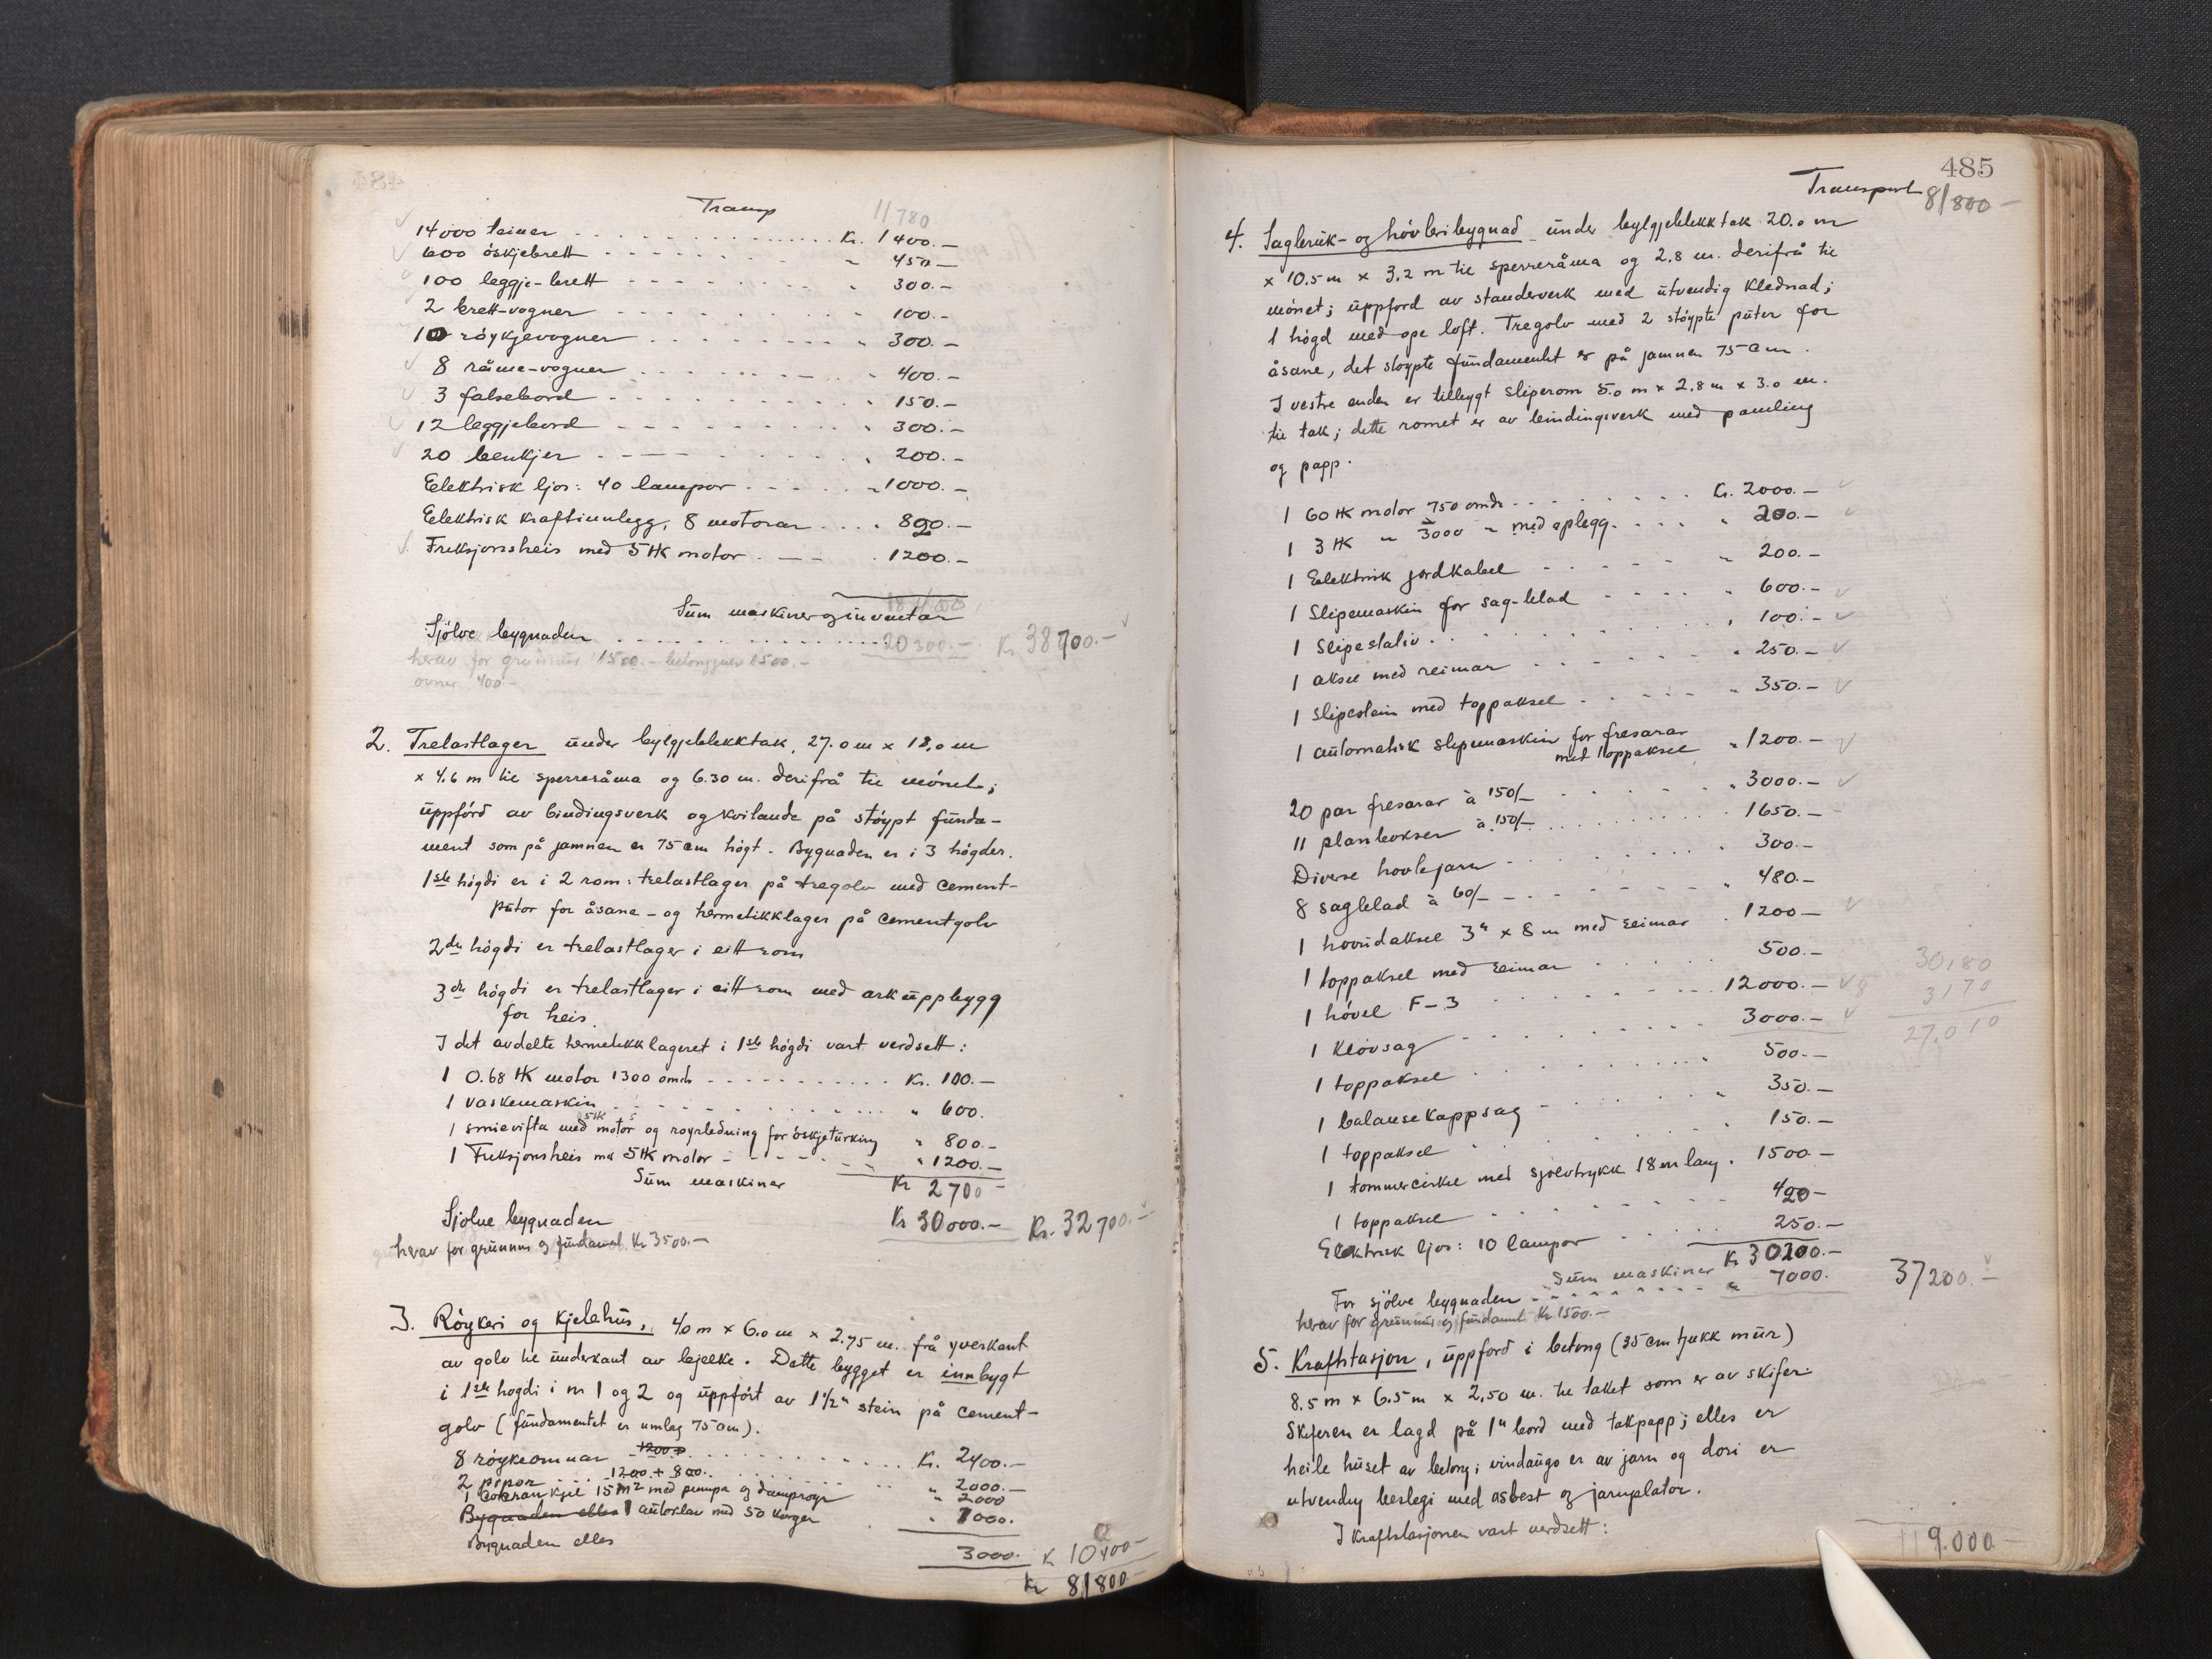 Transp 11780
14000 teiner Kr. 1400.-
600 öskjebrett " 450.-
100 leggje-brett " 300.-
2 brett-vogner " 100.-
10 röykjevogner " 300.-
8 råme-vogner " 400.-
3 falsebord " 150.-
12 leggjebord " 300.-
20 benkjer " 200.-
Elektrisk ljos: 40 lampor " 1000.-
Elektrisk kraftinnlegg, 8 motorar " 820.-
Friksjonsheis med 5 HK motor 1200.-
Sum maskiner og inventar
Sjölve bygnaden 20300.- Kr 38700.-
herav for grunnmur 1500.- betonggulv 1500.-
ovner 400.-
2. Trelastlager under bylgjeblekktak, 27.0 m x 18.0 m
x 4.6 m til sperreråma og 6.30 m. derifrå til mönet;
uppförd av bindingsverk og kvilande på stöypt funda-
ment som på jamnen er 75 cm högt. Bygnaden er i 3 högder.
1ste högdi er i 2 rom: trelastlager på tregolv med cement-
putor for åsane - og hermetikklager på cementgolv
2dre högdi er trelastlager i eitt rom
3dje högdi er trelastlager i eitt rom med arkuppbygg
for heis.
I det avdelte hermetikklageret i 1ste högdi vart verdsett:
1 0.68 HK motor 1300 omdr Kr. 100.-
1 vaskemaskin " 600.
1 smievifta med 5 HK motor og royrledning for öskjeturking " 800.-
1 Friksjonsheis med 5 HK motor " 1200.-
Sum maskiner Kr 2700-
Sjolve bygnaden Kr 30000.- Kr. 32700.-
herav for grunnmur og fundament Kr 3500.-
3. Röykeri og kjelehus, 40 m x 6.0 m x 2.75 m. frå yverkant
av golv til underkant av bjelke. Dette bygget er innbygt
i 1ste hogdi i nr 1 og 2 og uppfört av 1½" stein på cement-
golv (fundamentet er umlag 75 cm).
8 röykeomnar 1200 Kr. 2400.-
2 pipor 1200 + 800. " 2000.-
1 Cokran kjel 15 m² med pumpa og damproyr " 2000
Bygnaden elles 1 autoklav med 50 korger " 1000.
Bygnaden elles 3000. Kr 10400-
Kr 81800-
485
Transport 81800-
4. Sagbruk- og hövleribygnad under bylgjeblekktak 20.0 m
x 10.5 m x 3.2 m til sperreråma og 2.8 m. derifrå til
mönet; uppford av standerverk med utvendig klednad;
1 högd med ope loft. Tregolv med 2 stöypte puter for
åsane, det stoypte fundamentet er på jamnen 75 cm.
I vestre enden er tilbygt sliperom 5.0 m x 2.8 m x 3.0 m.
til tak; dette romet er av bindingsverk med paneling
og papp.
1 60 HK motor 750 omdr Kr. 2000.-
1 3 HK " 3000 " med oplegg " 200.-
1 Elektrisk jordkabel " 200.-
1 Slipemaskin for sag-blad " 600.-
1 Slipestativ " 100.-
1 aksel med reimar " 250.-
1 Slipestein med toppaksel " 350.-
1 automatisk slipemaskin for fresarar
med toppaksel " 1200.-
20 par fresarar à 150/- " 3000.-
11 plankokser à 150/- 1650.-
Diverse hovlejarn " 300.-
8 sagblad à 60/- " 480.-
1 hovudaksel 3" x 8 m med reimar 1200-
1 toppaksel med reimar 500.-
1 hövel F-3 12000.-
1 Klövsag 3000.-
1 toppaksel 500.-
1 balansekappsag " 350.-
1 toppaksel " 150.-
1 tommercirkel med sjolvtrykk 18 m lang 1500.-
1 toppaksel 420-
Elektrisk ljos: 10 lampor 250.-
Sum maskiner Kr 30200.-
For sjölve bygnaden " 7000. 37200.-
herav for grunnmur og fundament Kr 1500.-
30180
3170
27.010
5. Kraftstasjon, uppford i betong (35 cm tjukk mur)
8.5 m x 6.5 m x 2.50 m. til taket som er av skifer.
Skiferen er lagd på 1" bord med takpapp; elles er
heile huset av betong; vindaugo er av jarn og dori er
utvendig beslegi med asbest og jarnplator.
I Kraftstasjonen vart verdsett:
119.000-